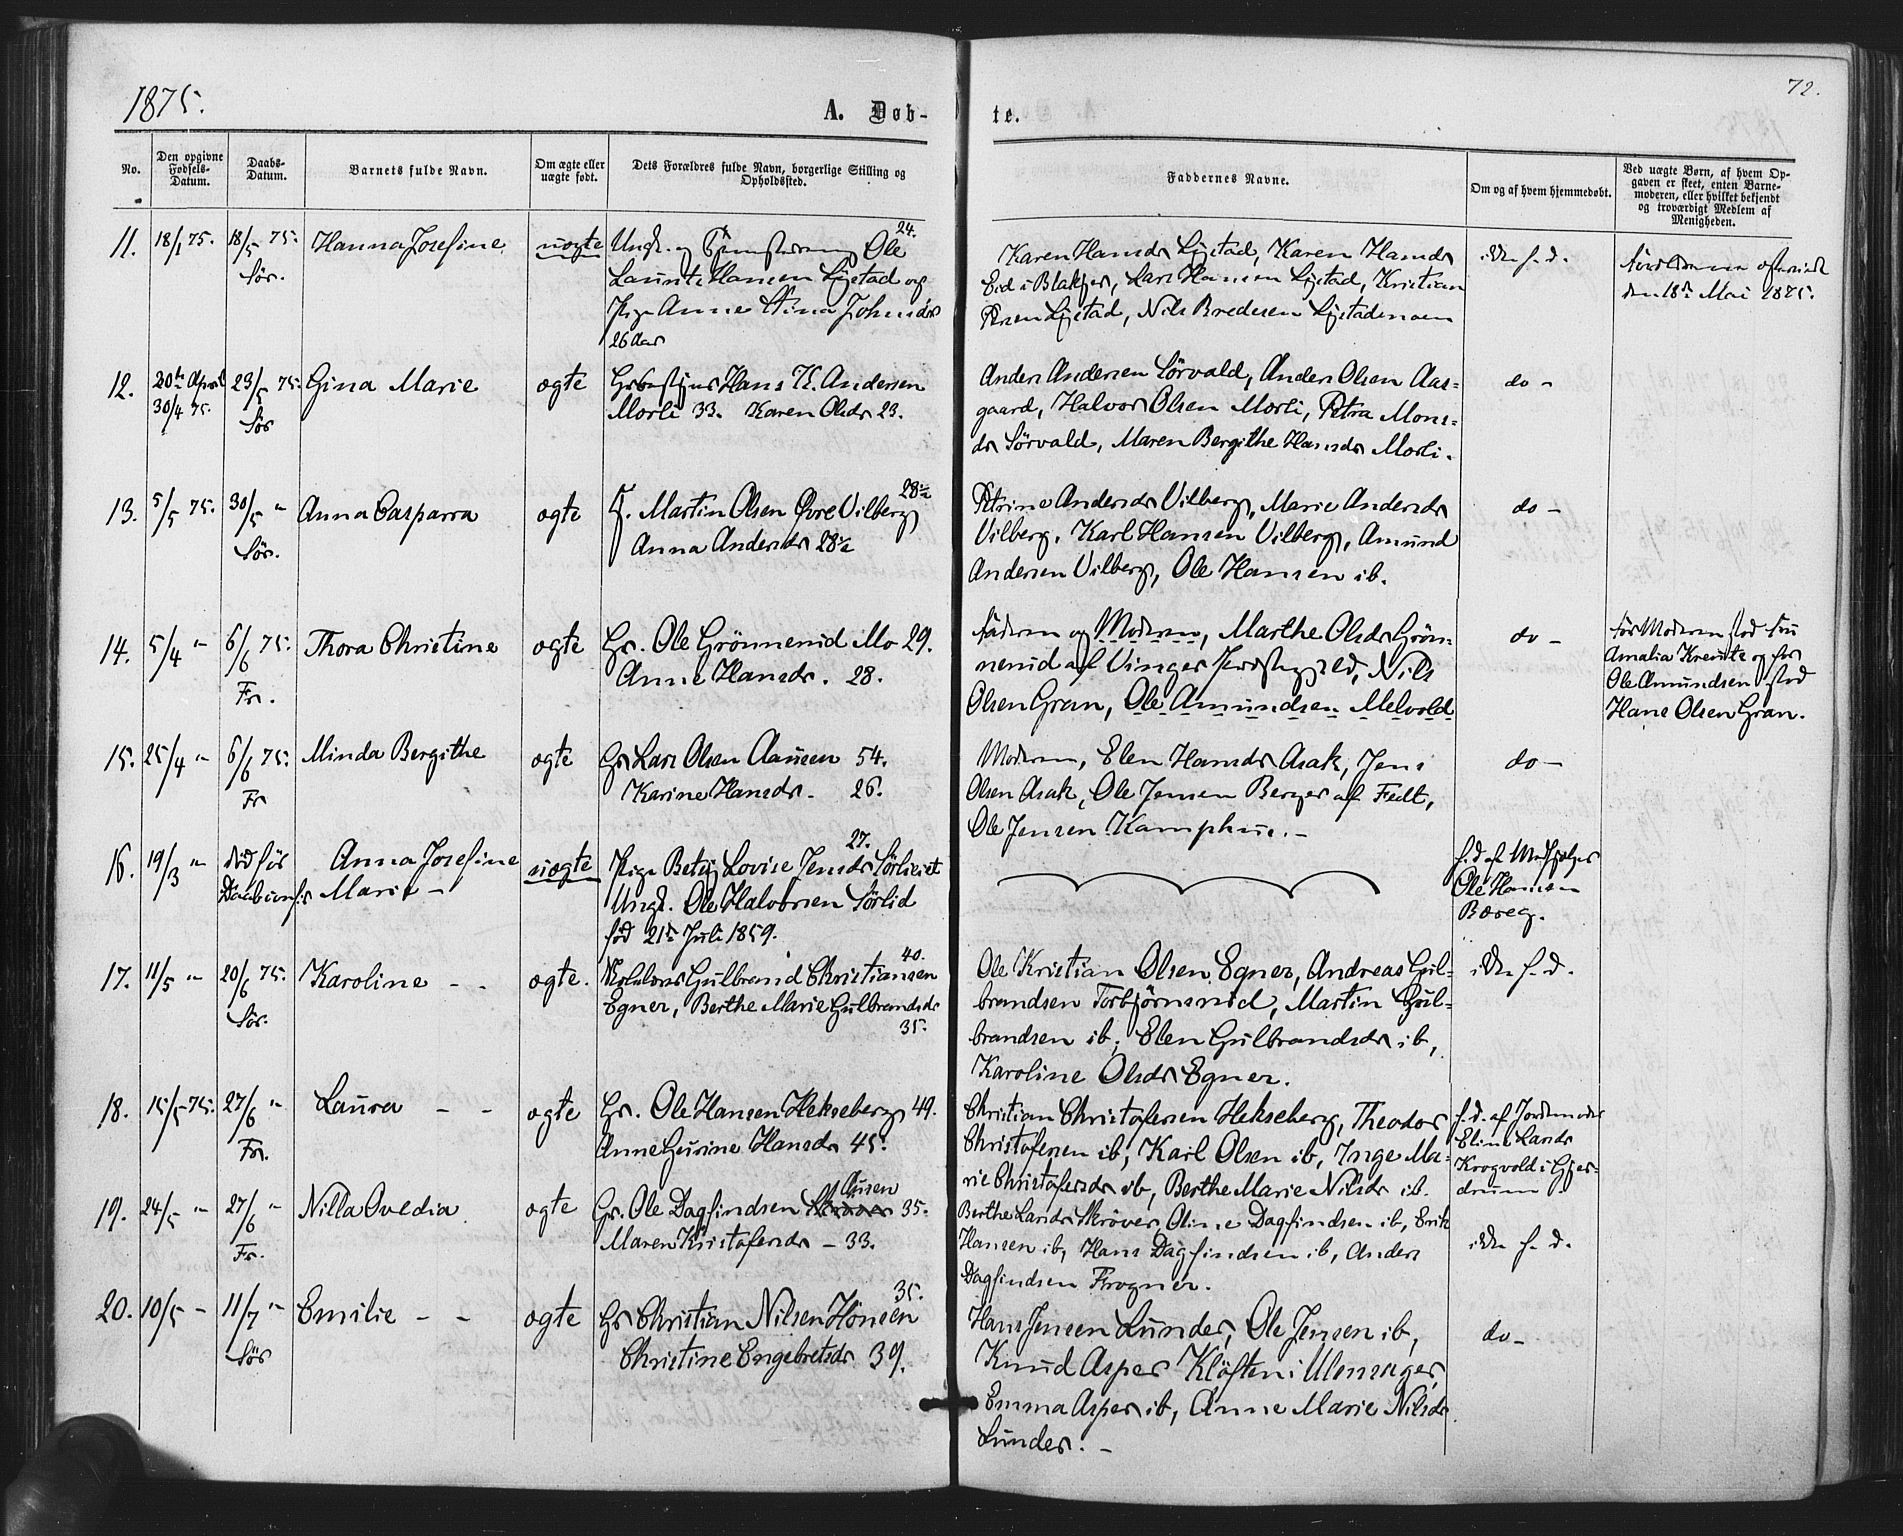 1875.
A. Døb-
te.
72.
No.
Den opgivne
Fødsels-
Datum.
Daabs-
Datum.
Barnets fulde Navn.
Om ægte eller
uægte født.
Dets Forældres fulde Navn, borgerlige Stilling og
Opholdssted.
Faddernes Navne.
Om og af hvem hjemmedøbt.
Ved uægte Børn, af hvem Op-
gaven er skeet, enten Barne-
moderen, eller hvilket bekjendt
og troværdigt Medlem af
Menigheden.
11.
18/1 75.
18/5 75.
Sør.
Hanna Josefine
uægte
Ungk. og Ole 24.
Hansen Ljøstad og
Pige Anne Stina Johnsdr
26 Aar
Karen Hansdr Ljøstad, Karen Hansdr
Eid i Blakjer, Lars Hansen Ljøstad, Kristian
Ljøstad, Nils Bredesen
ikke h. d.
den 18de Mai 1875.
12.
20de April
30/4 75.
23/5 75.
Sør
Gina Marie
ægte
Hans K. Andersen
Morli 33. Karen Olsdr 23.
Anders Andersen Sørvald, Anders Olsen Aas-
gaard, Halvor Olsen Morli, Petra Mons-
dr Sørvald, Maren Bergithe Hansdr Morli.
do -
13.
5/5 75.
30/5 "
Sør.
Anna Casparra
ægte
Martin Olsen Øvre Vilberg 28½
Anna Andersdr 28½
Petrine Andersdr Vilberg, Marie Andersdr
Vilberg, Karl Hansen Vilberg, Amund
Andersen Vilberg, Ole Hansen ib.
do -
14.
5/4 "
6/6 75.
Fr.
Thora Christine
ægte
Gr. Ole Grönnerud Mo 29.
Anne Hansdr. 28.
Faderen og Moderen, Marthe Olsdr Grön-
nerud af Vinger Præstegjeld, Nils
Olsen Gran, Ole Amundsen Melvold
do -
for Moderen stod Fru
Amalia Kreutz og for
Ole Amundsen stod
Hans Olsen Gran.
15.
25/4 "
6/6 75.
Fr
Minda Bergithe
ægte
Gr Lars Olsen Aausen 54.
Karine Hansdr. 26.
Moderen, Elen Hansdr Asak, Jens
Olsen Asak, Ole Jensen Berger af Fedt,
Ole Jensen Kamphus. -
do -
16.
19/3 "
død før
Anna Josefine
Marie -
uægte
Pige Betsy Lovise Jensdr 27.
Ungk. Ole Halvorsen Sørlid
fød 21de Juli 1859.
h. d. af
Ole Hansen
17.
11/5 "
20/6 75.
Sør.
Karoline - -
ægte.
Gulbrand Christiansen 40.
Egner, Berthe Marie Gulbrandsdr
35.
Ole Kristian Olsen Egner, Andreas Gul-
brandsen Torbjörnsrud, Martin Gul-
brandsen ib, Elen Gulbrandsdr ib,
Karoline Olsdr Egner.
ikke h. d.
18.
15/5 75.
27/6 "
Fr.
Laura - -
ægte
Gr. Ole Hansen Hekseberg 49.
Anne Gurine Hansdr 45.
Christian Christofersen Hekseberg, Theodor
Christofersen ib, Karl Olsen ib, Inge Ma-
rie Christofersdr ib, Berthe Marie Nilsdr ib.
h. d. af Jordemoder
Eline Larsdr
Krogvold i Gjer-
drum.
19.
24/5 "
27/6 "
Fr.
Nilla Ovedia
ægte
Gr. Ole Dagfindsen Skrøver Ausen 35.
Maren Kristofersdr - 33.
Berthe Larsdr Skrøver, Oline Dagfindsen ib, Erik
Hansen ib, Hans Dagfindsen ib, Anders
Dagfindsen Frogner.
ikke h. d.
20.
10/5 -
11/7 "
Sør
Emilie - -
ægte
Gr Christian Nilsen Hönsen 35.
Christine Engebretsdr 39.
Hans Jensen Lunder, Ole Jensen ib,
Knud Asper Klöften i Ulensager,
Emma Asper ib, Anne Marie Nilsdr
Lunder. -
do -